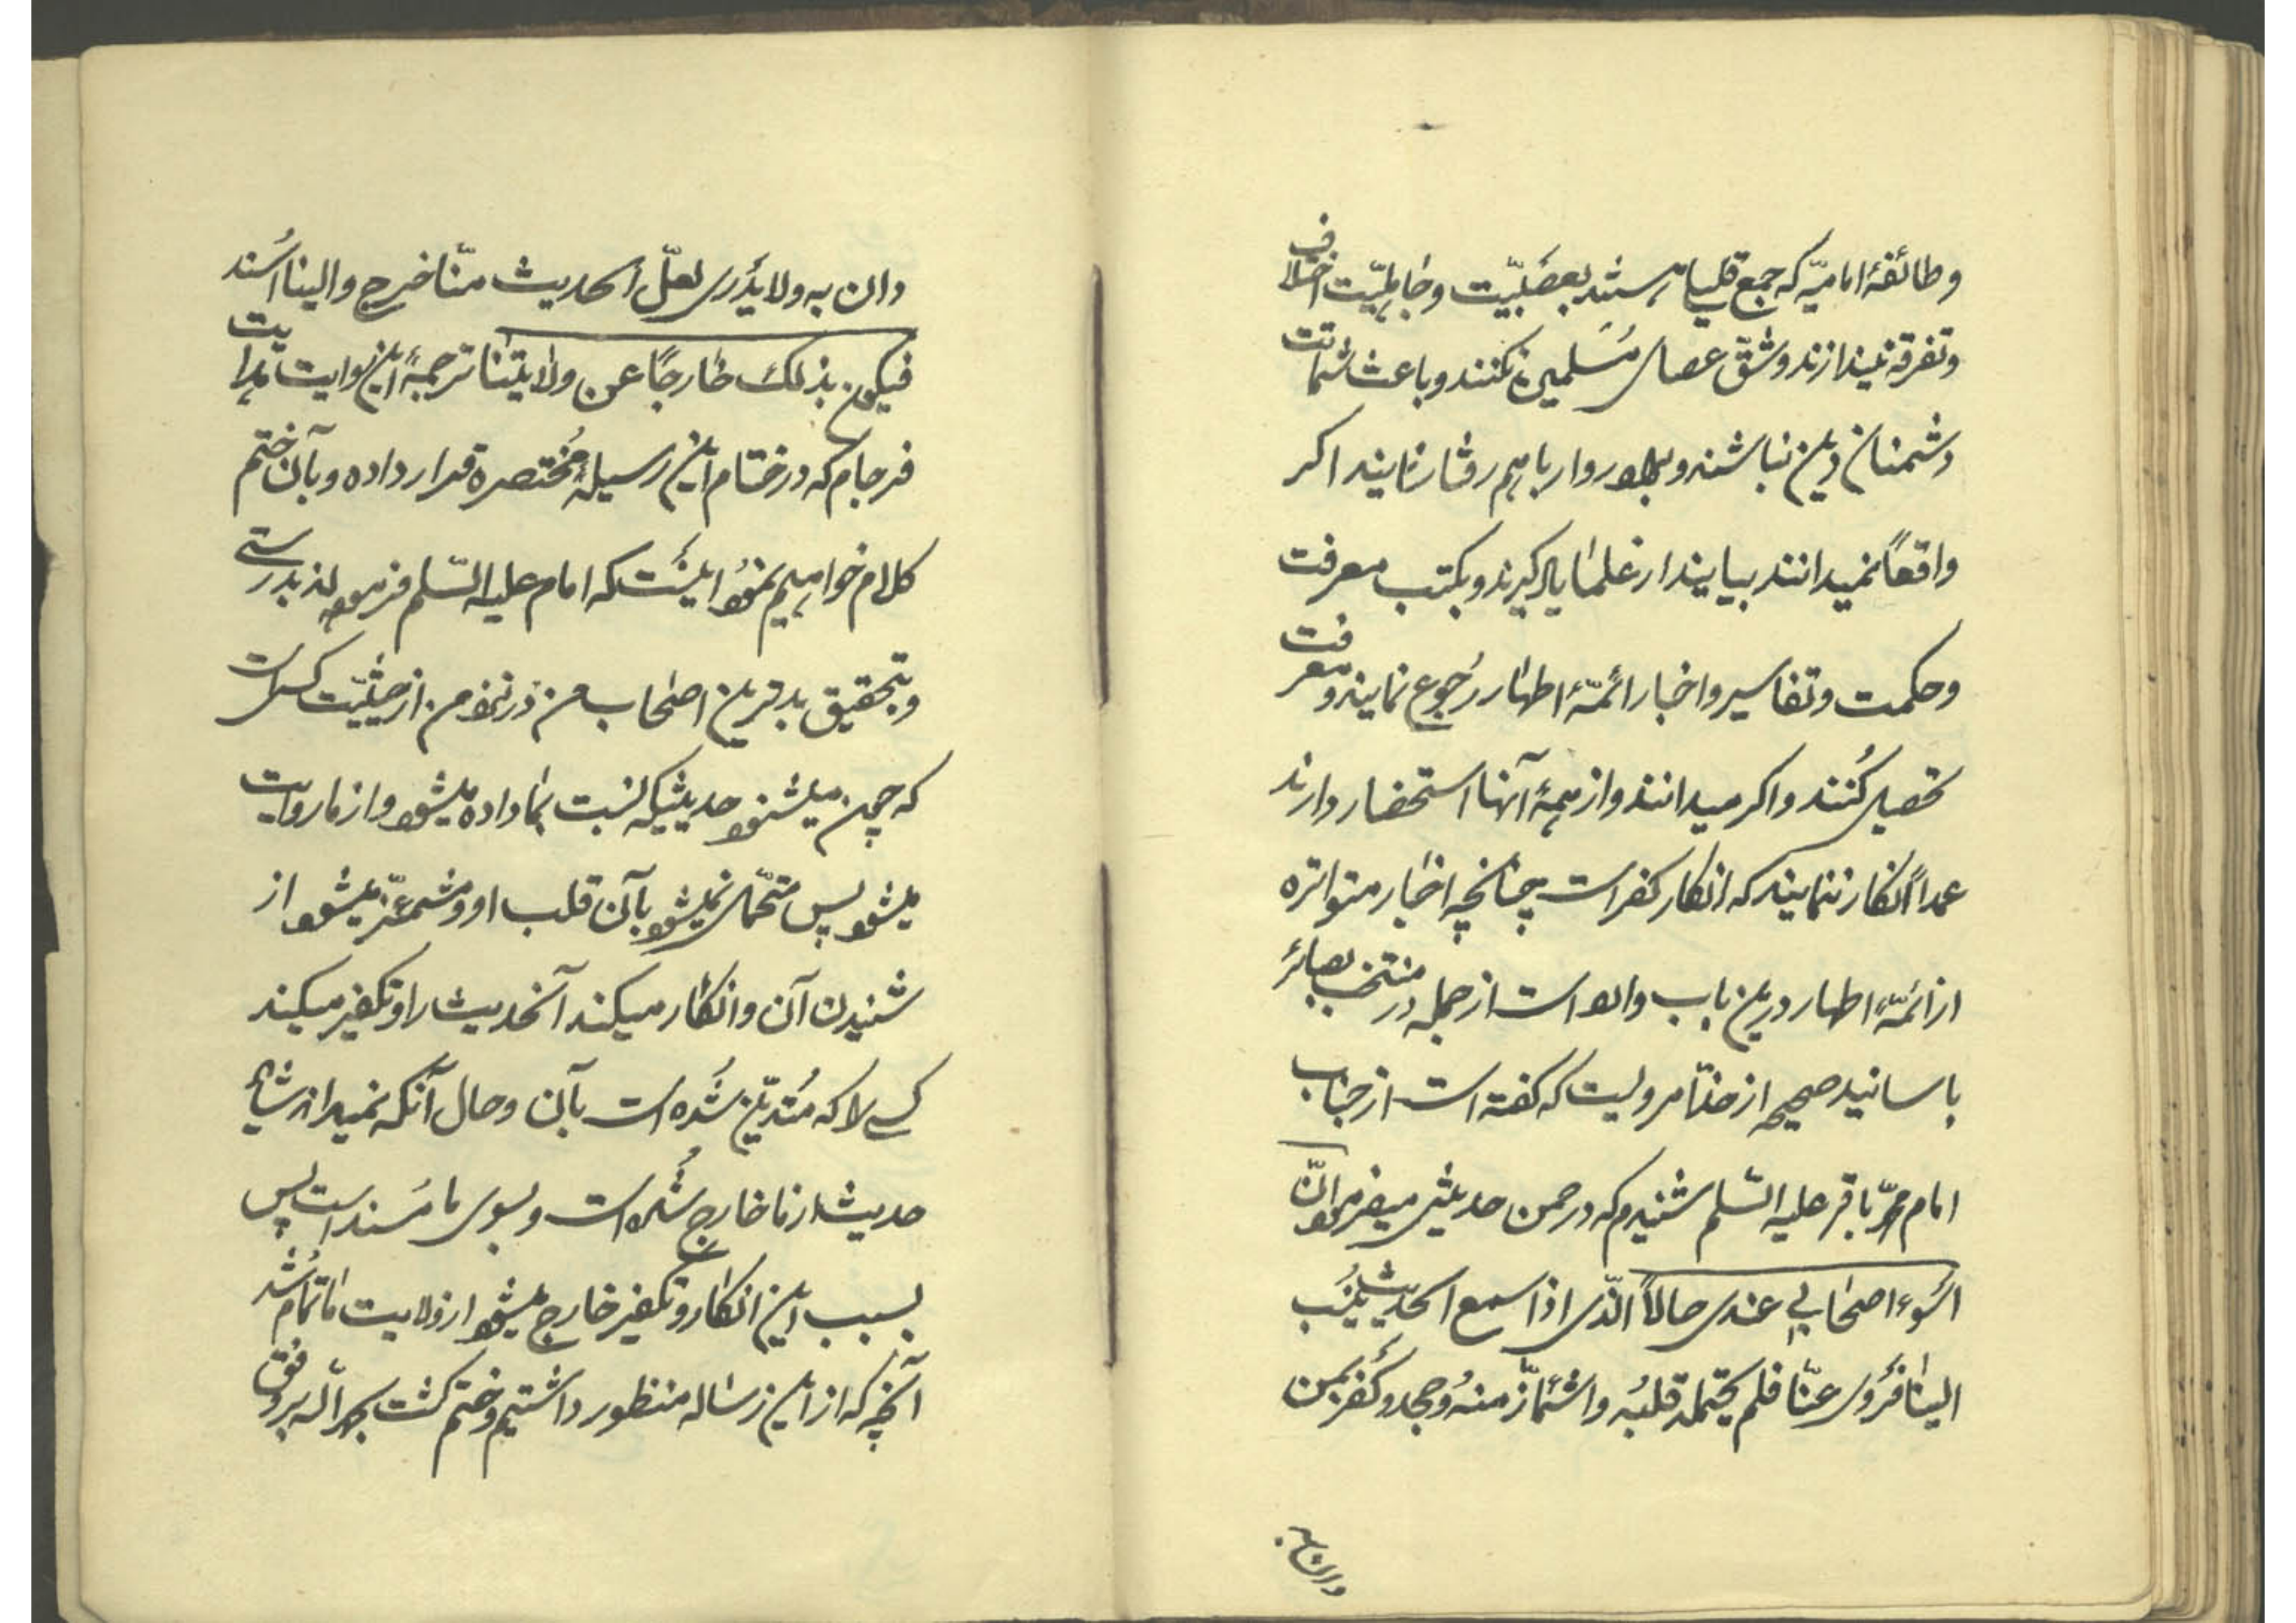 وطائفهٔ امامیّه که جمع قلیل هستند بعصبیّت وجاهلیّت اختلاف
وتفرقه نیندازند وشقّ عصای مُسلمین نکنند وباعث شماتت
دشمنان دین نباشند وبطور روا باهم رفتار نمایند اکر
واقعاً نمیدانند بیایند از علمٰا یاد کیرند وبکتب معرفت
وحکمت وتفاسیر واخبار ائمّهٔ اطهٰار رجوع نمایند ومعرفت
تحصیل کُنند واکر میدانند واز همهٔ آنها استحضار دارند
عمداً انکار ننمایند که انکار کفر است چنانچه اخبٰار متواتره
از ائمّهٔ اطهار درین باب وارد است از جمله در منتخب بصائر
باسانید صحیحه از حذّا مرویست که کفته است از جناب
امام محمّد باقر علیه السّلم شنیدم که در ضمن حدیثی میفرمود انّ
اسَوء اصحٰابی عندی حالاً الّذی اذا سمع الحدیث یُنسَب
الینٰا فرُوی عنّا فلم یحتمله قلبُه واشمأزّ منهُ وجحد وکفّر بمن
دان به
دان به ولا یَدْری لعلّ الحدیث منّا خرج والینا اُسند
فیکون بذلک خٰارجاً عن ولایتنٰا ترجمهٔ این روایت هدایت
فرجام که در ختام این رسیلهٔ مُختصره قرار داده وبآن ختم
کلام خواهیم نمود اینَست که امام علیه السّلم فرموده‌اند بدرستی
وبتحقیق بدترین اصحٰاب من در نزد من از حیثیّت کسی است
که چون میشنود حدیثیکه نسبت بمٰا داده میشود واز ما روایت
میشود پس متحمّل نمیشود بآن قلب او ومشمئزّ میشود از
شنیدن آن وانکٰار میکند آنحدیث را وتکفیر میکند
کسی را که مُتدیّن شُده است بآن وحال آنکه نمیداند شاید
حدیث از مٰا خارج شُده است وبسوی ما مُسند است پس
بسبب این انکٰار وتکفیر خارج میشود از ولایت مٰا تمام شُد
آنچه که از این رسٰاله منظور داشتیم وختم کشت بحمد الله بر وفق